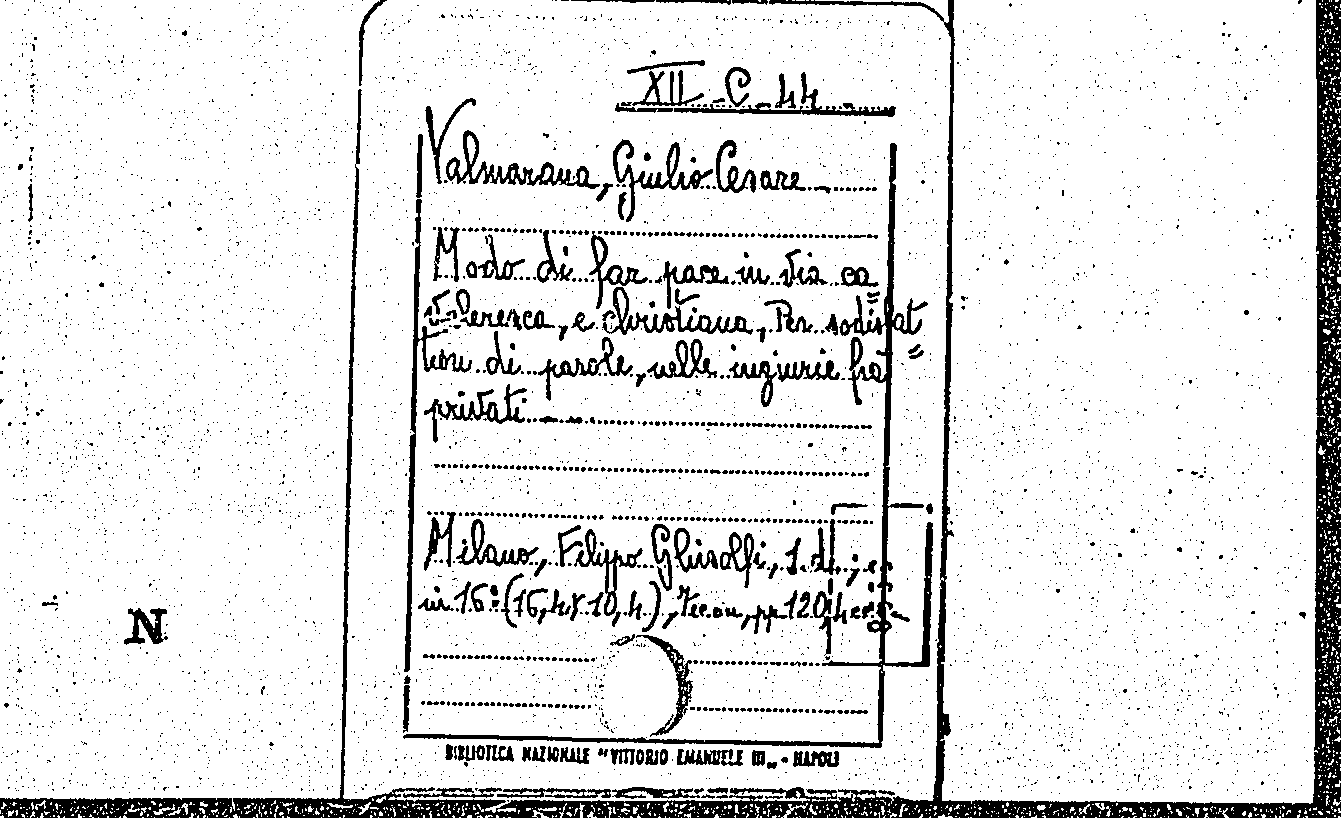 XII - C - 44
Valmarana, Giulio Cesare
Modo di far pace in via ca
valeresca, e christiana, Per sodisfat
tion di parole, nelle ingiurie frà
privati
Milano, Filippo Ghisolfi, s.d.;
in 16° (16,4 x 10,4), pp 120,
N
BIBLIOTECA NAZIONALE "VITTORIO EMANUELE III" - NAPOLI